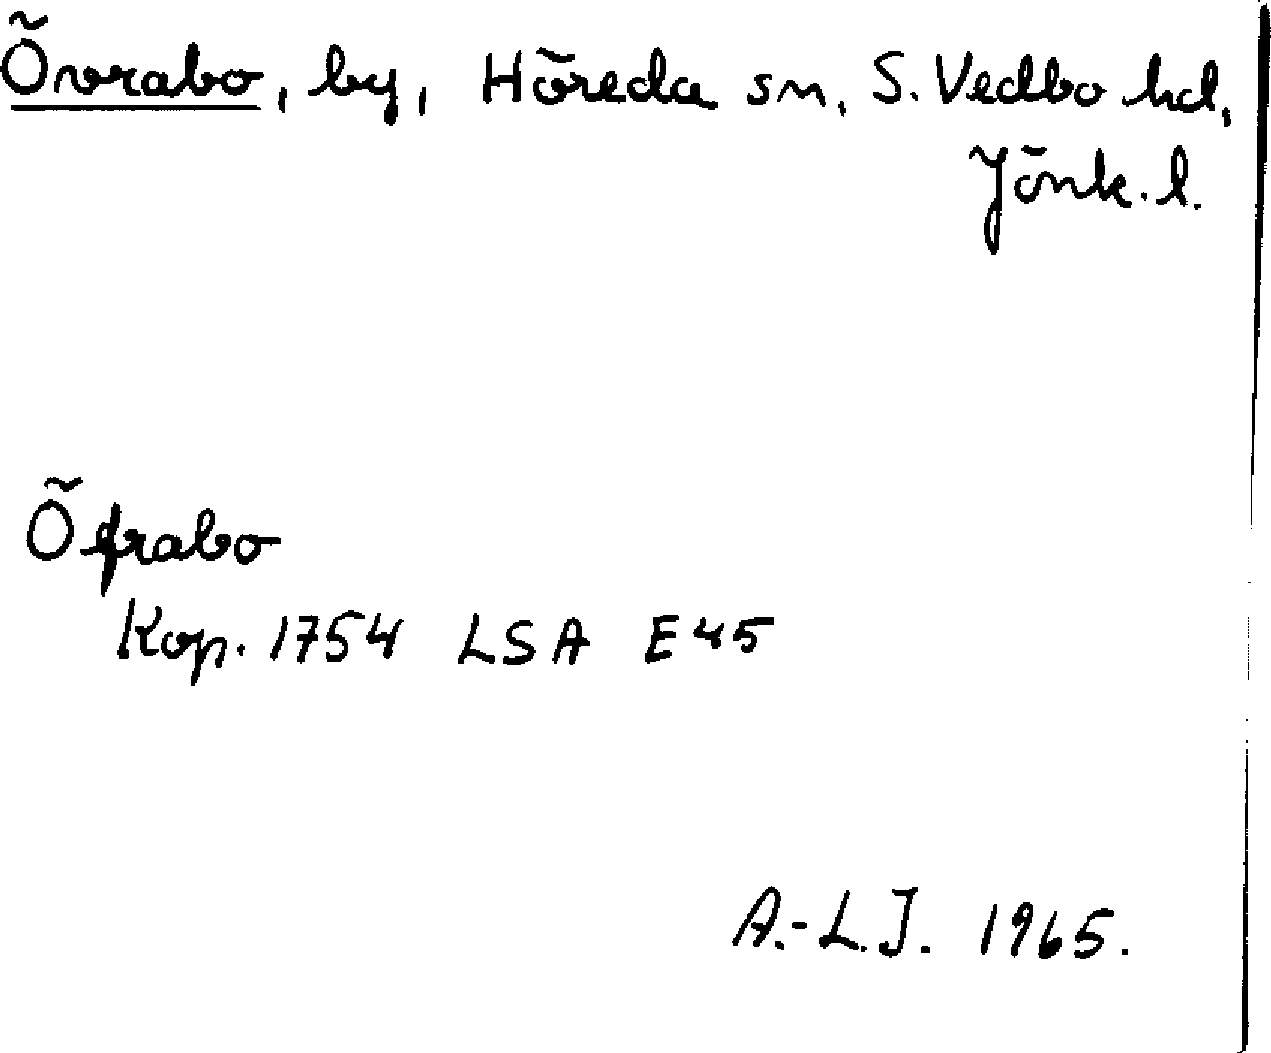 Övrabo, by, Höreda sn, S. Vedbo hd,
Jönk. l.
Öfrabo
Kop. 1754 LSA E45
A.-L.J. 1965.